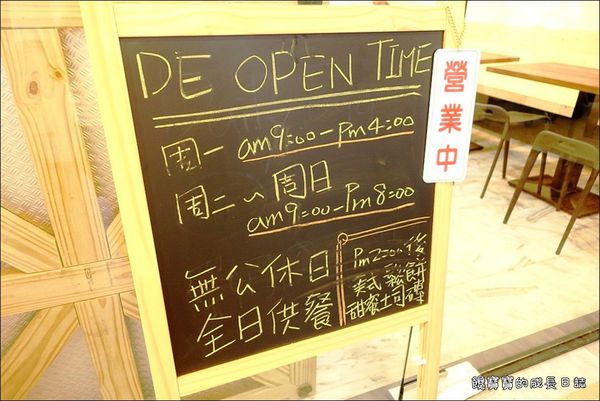 DE OPEN TIME
營業中
周一 am9:00-Pm4:00
周二~周日
am9:00-Pm8:00
無公休日
全日供餐
Pm2:00後
美式鬆餅
甜蜜土司磚
饅寶寶的成長日誌